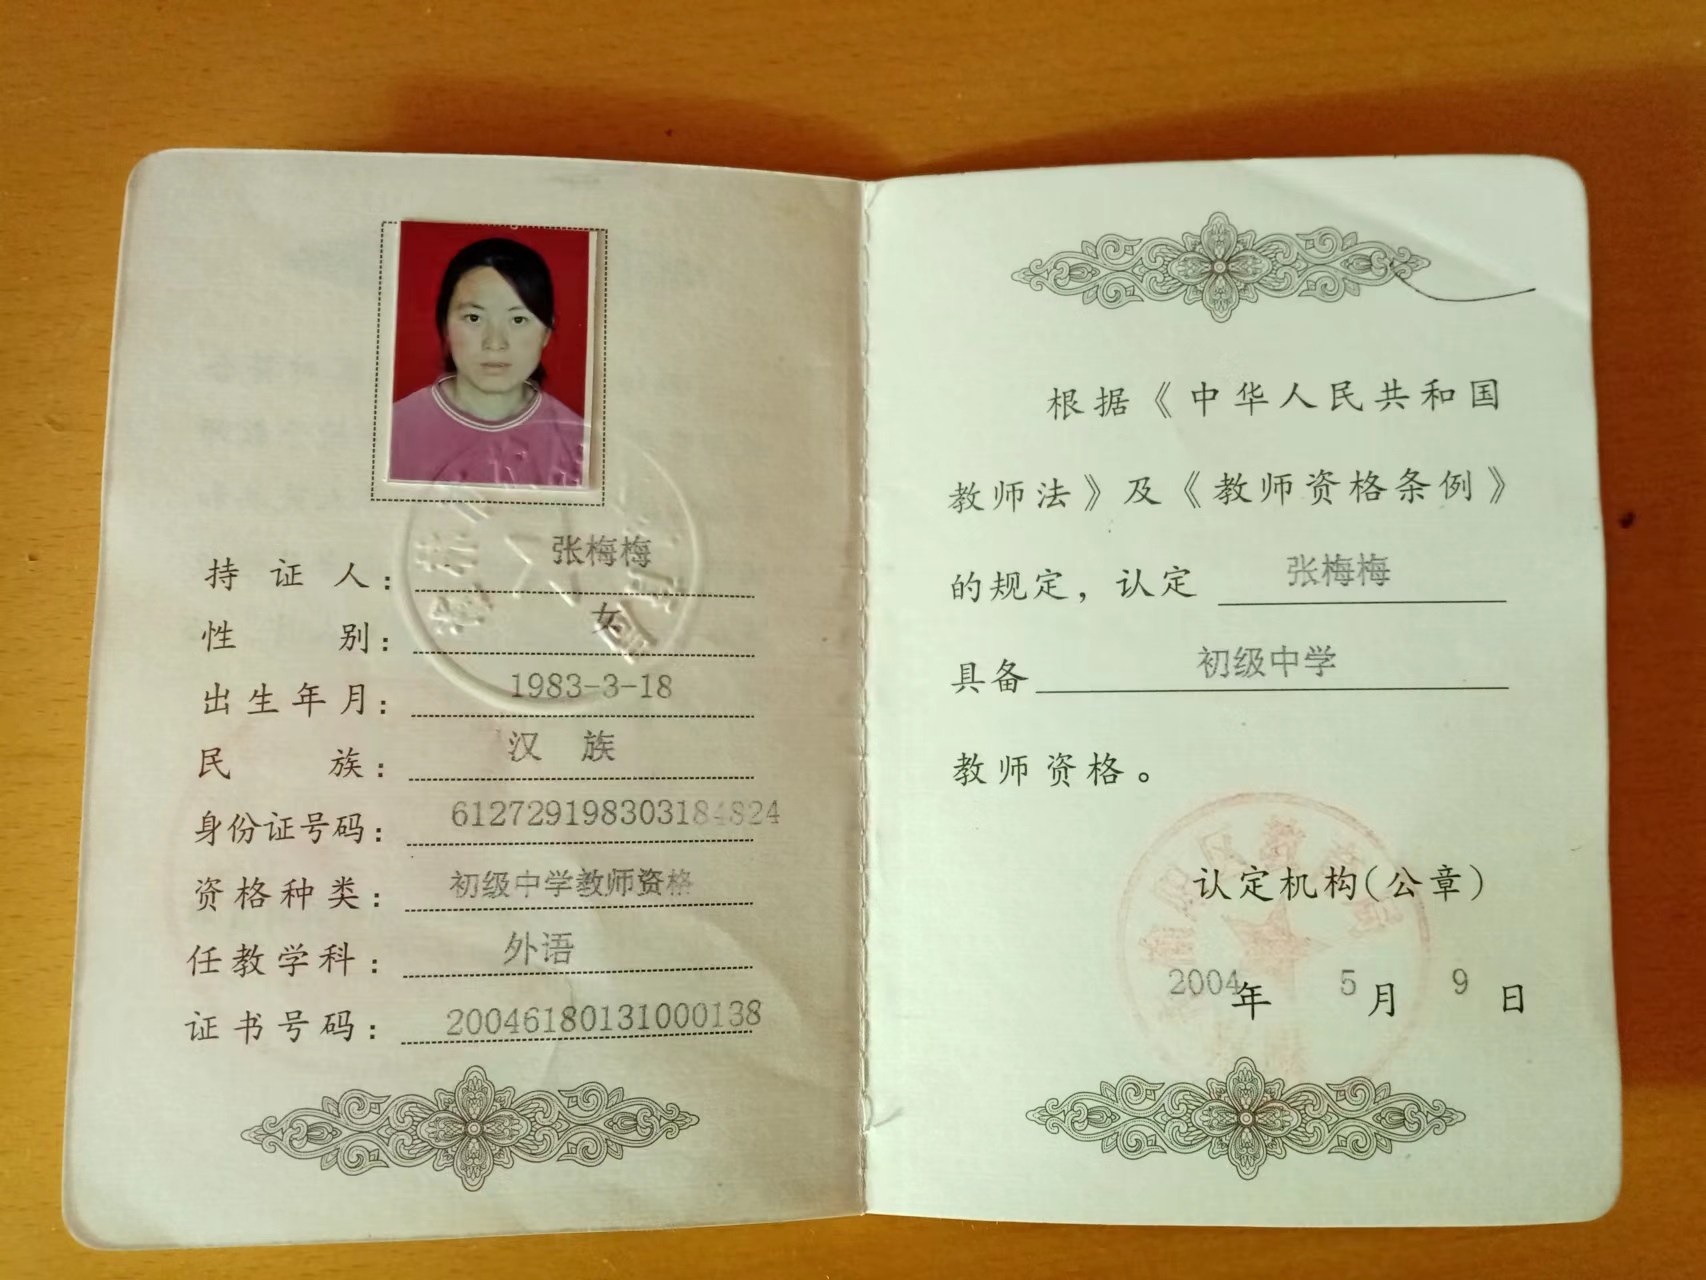 持证人：张梅梅
性别：女
出生年月：1983-3-18
民族：汉 族
身份证号码：612729198303184824
资格种类：初级中学教师资格
任教学科：外语
证书号码：20046180131000138
根据《中华人民共和国
教师法》及《教师资格条例》
的规定，认定 张梅梅
具备 初级中学
教师资格。
认定机构(公章)
2004年 5月 9日